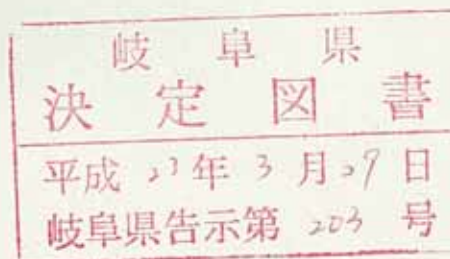 岐阜県
決定図書
平成23年3月29日
岐阜県告示第203号